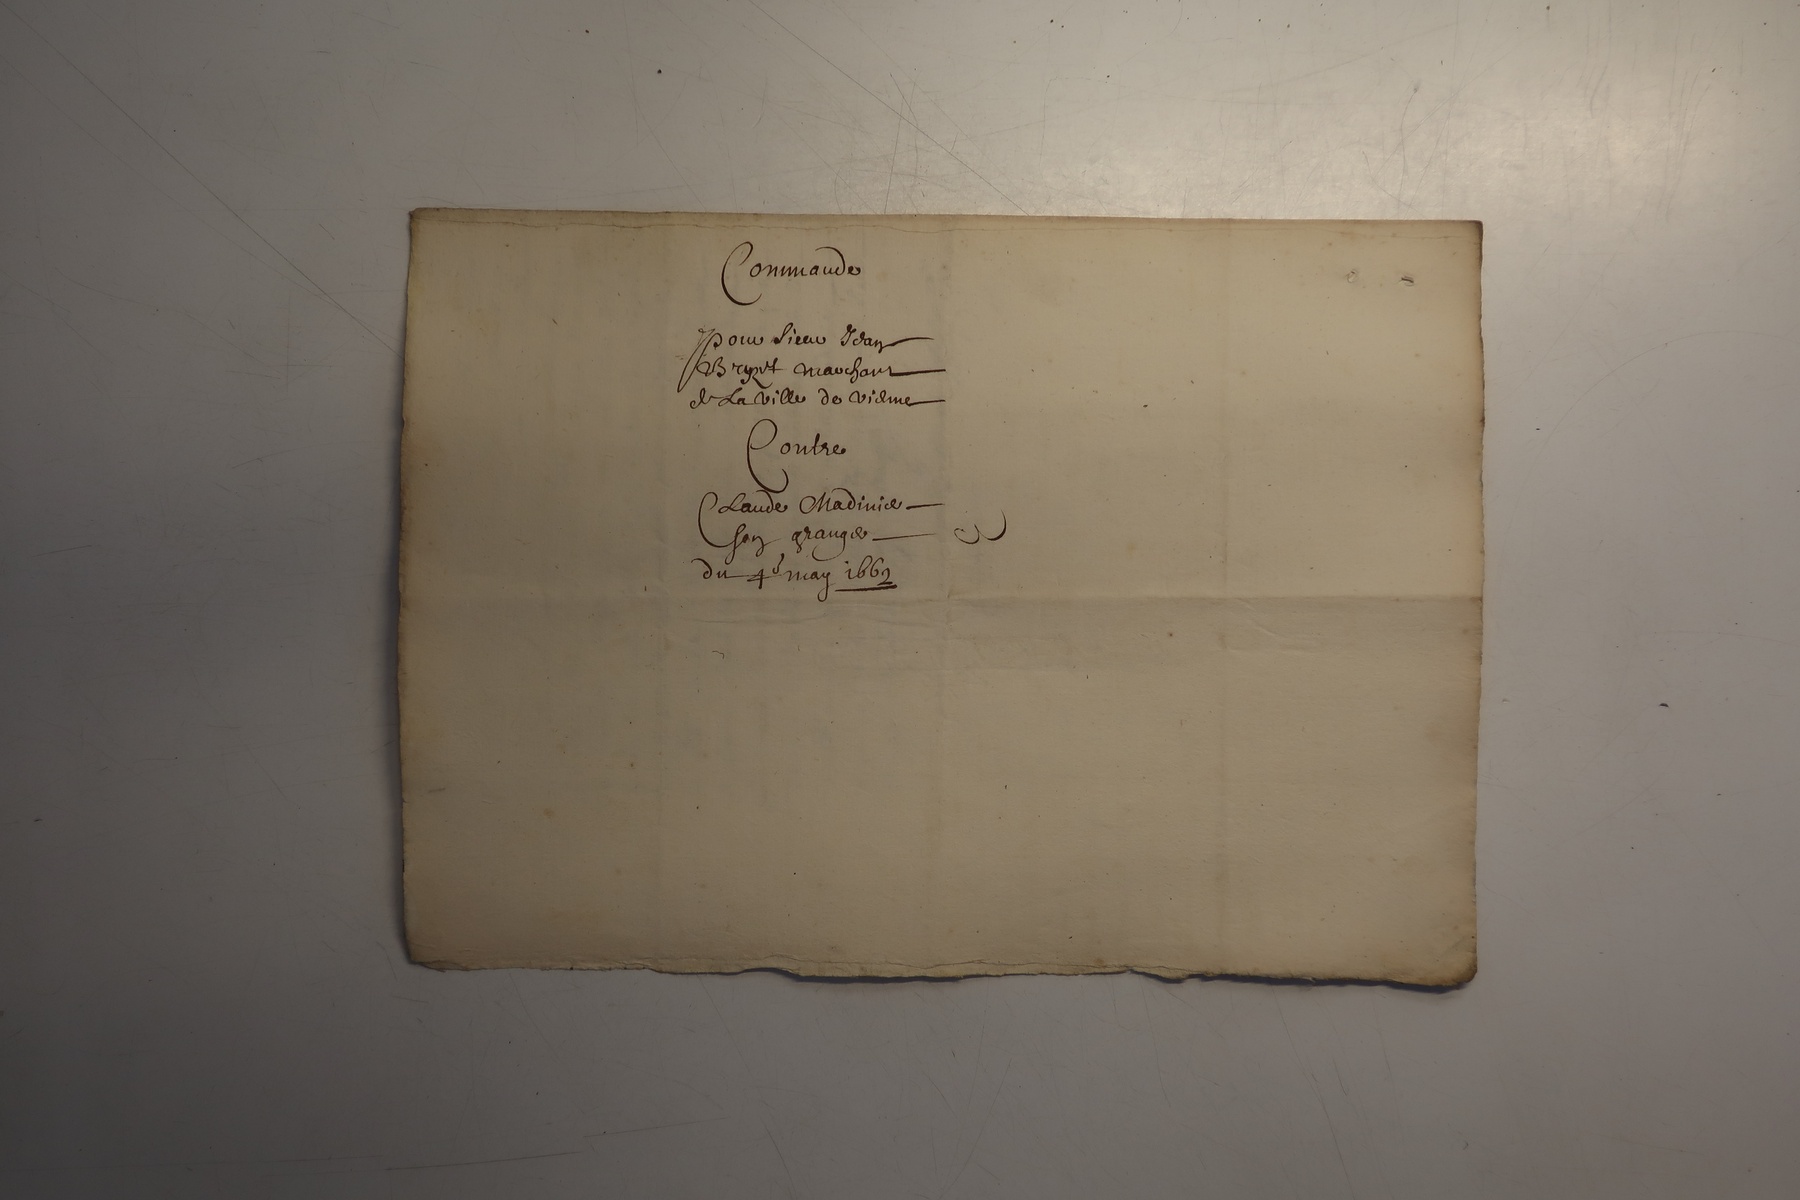 Commande
pour sieur Jean
marchant
de La ville de vienne
Contre
Claude Madinier
son granger
du 4e may 1662